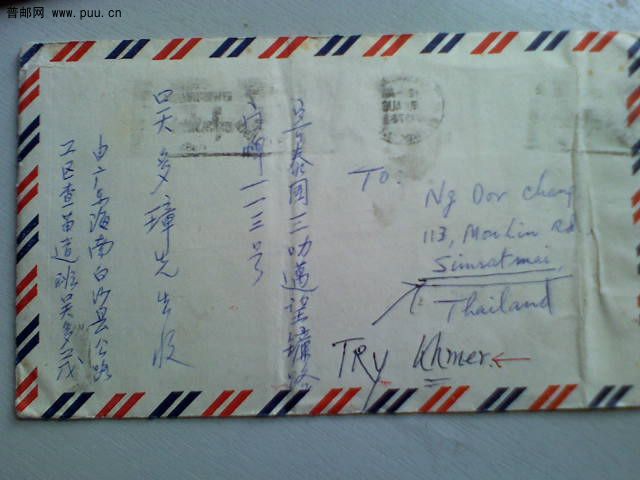 普邮网
www.puu.cn
至泰国三叻邁望
门牌一一三号
吴多璋先生收
由广东海南白沙县公路
工区查苗道班吴多茂
TO:
Ng Dor Chang
113, Moulin Rd
Simratmai,
Thailand
TRY Khmer